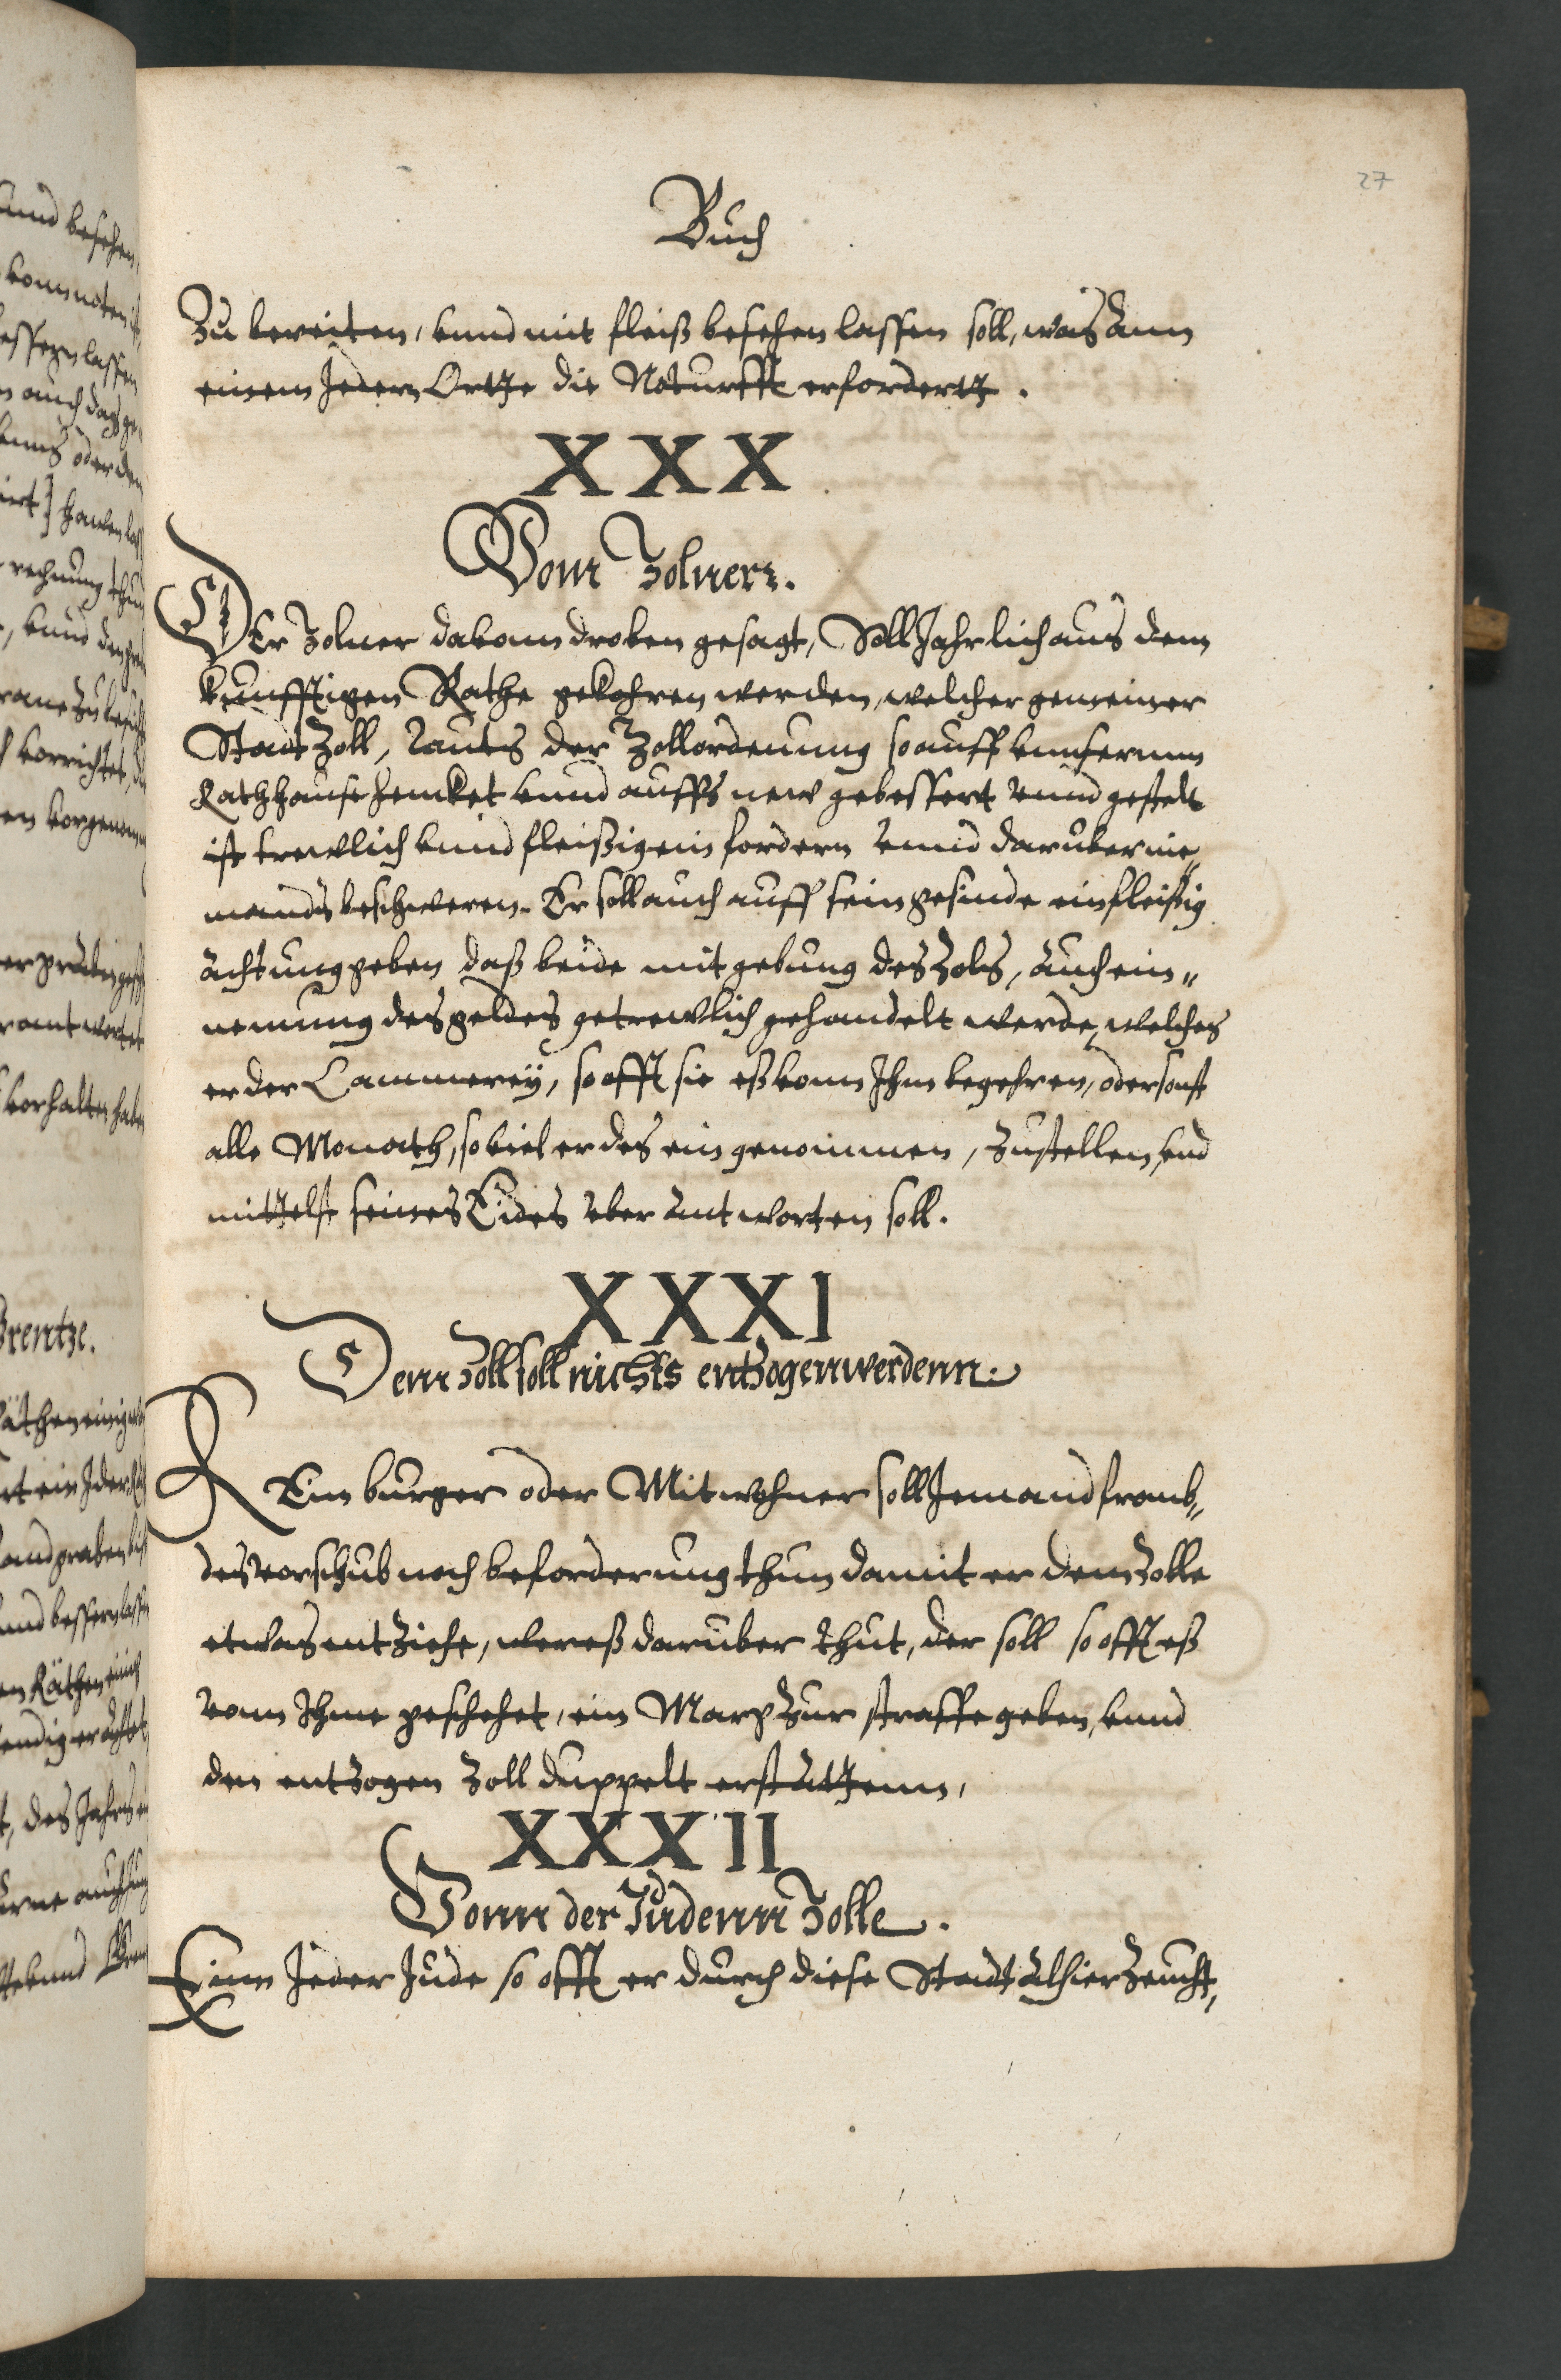 27
Buch
Zu bereiten, vnnd mit fleiß besehen lassen soll, was ann
einem Jedern Ortte die Noturfft erfordertt.
XXX
Vom Zolner.
DEr Zolner dauonn droben gesagt, Soll Jahrlich aus dem
kunfftigen Rathe gekohren werden, welcher gemeiner
Stadt Zoll, lauts der Zollordenung so auff vnnserm
Rathhause hencket vnnd auffs new gebessert vnnd gestelt
ist trewlich vnnd fleißig ein fordern vnnd daruber nie„
mands beschweren. Er soll auch auff sein gesinde ein fleissig
achtung geben daß beide mit gebung des Zols, auch ein„
nemung des geldes getrewlich gehandelt werde, welches
er der Cammereÿ, so offt sie eß vonn Ihm begehren, oder sonst
alle Monath, so viel er des ein genommen, Zustellen, vnd
mittelst seines Eides vber antworten soll.
XXXI
Dem Zoll soll nichts entzogenn werdenn.
KEin burger oder Mitwohner soll Jemand fremb„
des vorschub noch beforderung thun damit er dem Zolle
etwas entziehe, wer eß daruber thut, der soll so offt eß
vonn Ihme geschehet, ein Marg Zur straffe geben, vnnd
den entzogen Zoll duppelt erstattenn,
XXXII
Vonn der Jüdenn Zolle.
Einn Jeder Jude so offt er durch diese Stadt alhier Zeucht,